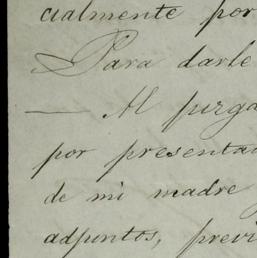 cialmente por
Para darle
— Al purga
por presenta
de mi madre
adjuntos, previ